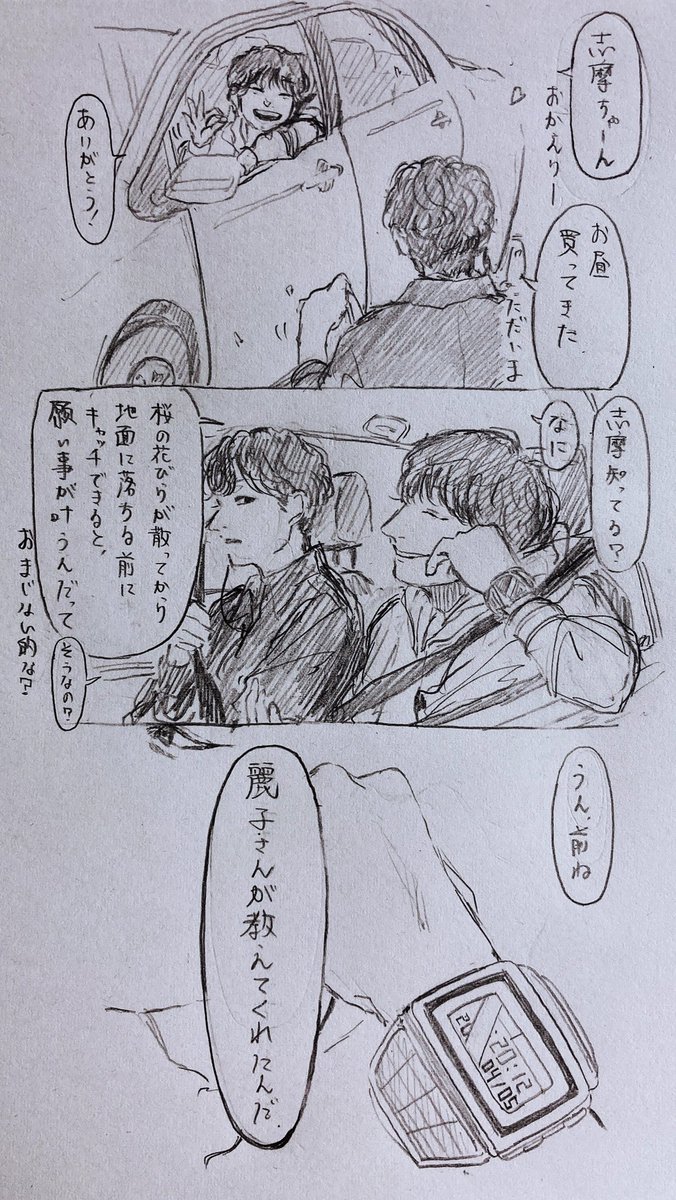 志摩ちゃーん
おかえりー
お昼
買ってきた
ただいま
ありがとう!
志摩知ってる?
なに
桜の花びらが散ってから
地面に落ちる前に
キャッチできると、
願い事が叶うんだって
おまじない的な?
そうなの?
うん、前ね
麗子さんが教えてくれたんだ.
20:12
04/05